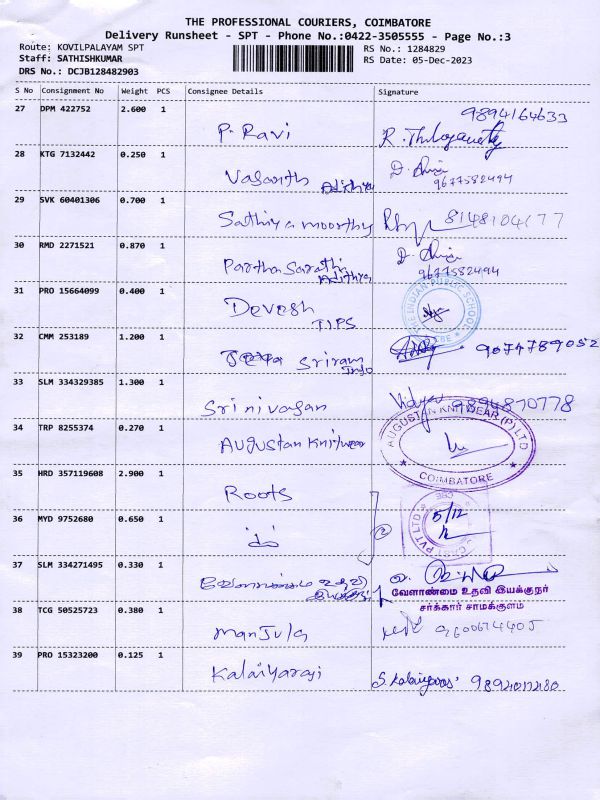 THE PROFESSIONAL COURIERS, COIMBATORE
Delivery Runsheet - SPT - Phone No.:0422-3505555 - Page No.:3
Route: KOVILPALAYAM SPT
RS No.: 1284829
Staff: SATHISHKUMAR
RS Date: 05-Dec-2023
DRS No.: DCJB128482903
S No Consignment No Weight PCS Consignee Details Signature
27 DPM 422752 2.600 1
9894164633
P. Ravi
28 KTG 7132442 0.250 1
Vasanth Adithya
9677582494
29 SVK 60401306 0.700 1
Sathiya moorthy
8148104177
30 RMD 2271521 0.870 1
Partha Sarathi
Adithya
9677582494
31 PRO 15664099 0.400 1
Devesh
TIPS
THE INDIAN PUBLIC SCHOOL
CBE
32 CMM 253189 1.200 1
Sriram
Info
9074789052
33 SLM 334329385 1.300 1
Srinivasan
Vidya 9894870778
34 TRP 8255374 0.270 1
Augustan Knitwear
AUGUSTAN KNITWEAR (P) LTD
COIMBATORE
35 HRD 357119608 2.900 1
Roots
36 MYD 9752680 0.650 1
CBE
5/12
CAST PVT LTD
37 SLM 334271495 0.330 1
வேளாண்மை உதவி
வேளாண்மை உதவி இயக்குநர்
சர்க்கார் சாமக்குளம்
38 TCG 50525723 0.380 1
Manjula
39 PRO 15323200 0.125 1
Kalaiyarasi